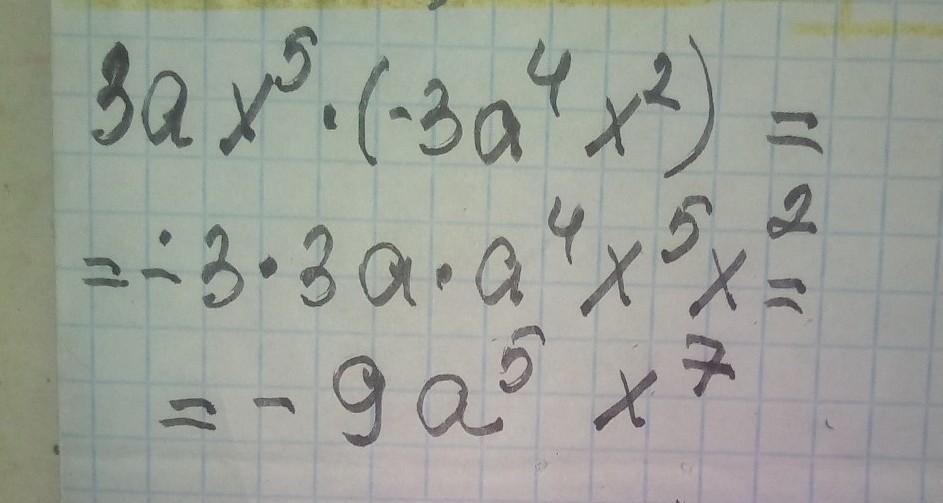 3ax⁵·(-3a⁴x²) =
= -3·3a·a⁴x⁵x² =
= -9a⁵x⁷